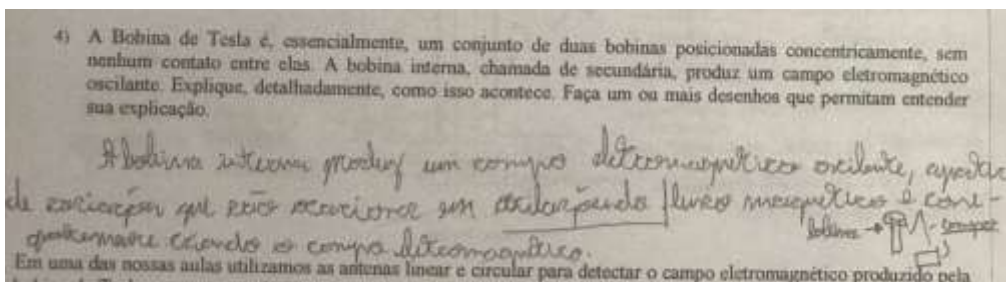 4) A Bobina de Tesla é, essencialmente, um conjunto de duas bobinas posicionadas concentricamente, sem
nenhum contato entre elas. A bobina interna, chamada de secundária, produz um campo eletromagnético
oscilante. Explique, detalhadamente, como isso acontece. Faça um ou mais desenhos que permitam entender
sua explicação.
A bobina interna produz um campo eletromagnético oscilante, apartir
de que vão ocacionar em fluxo magnético e
criando o campo eletromagnético.
bobina → campo
Em uma das nossas aulas utilizamos as antenas linear e circular para detectar o campo eletromagnético produzido pela